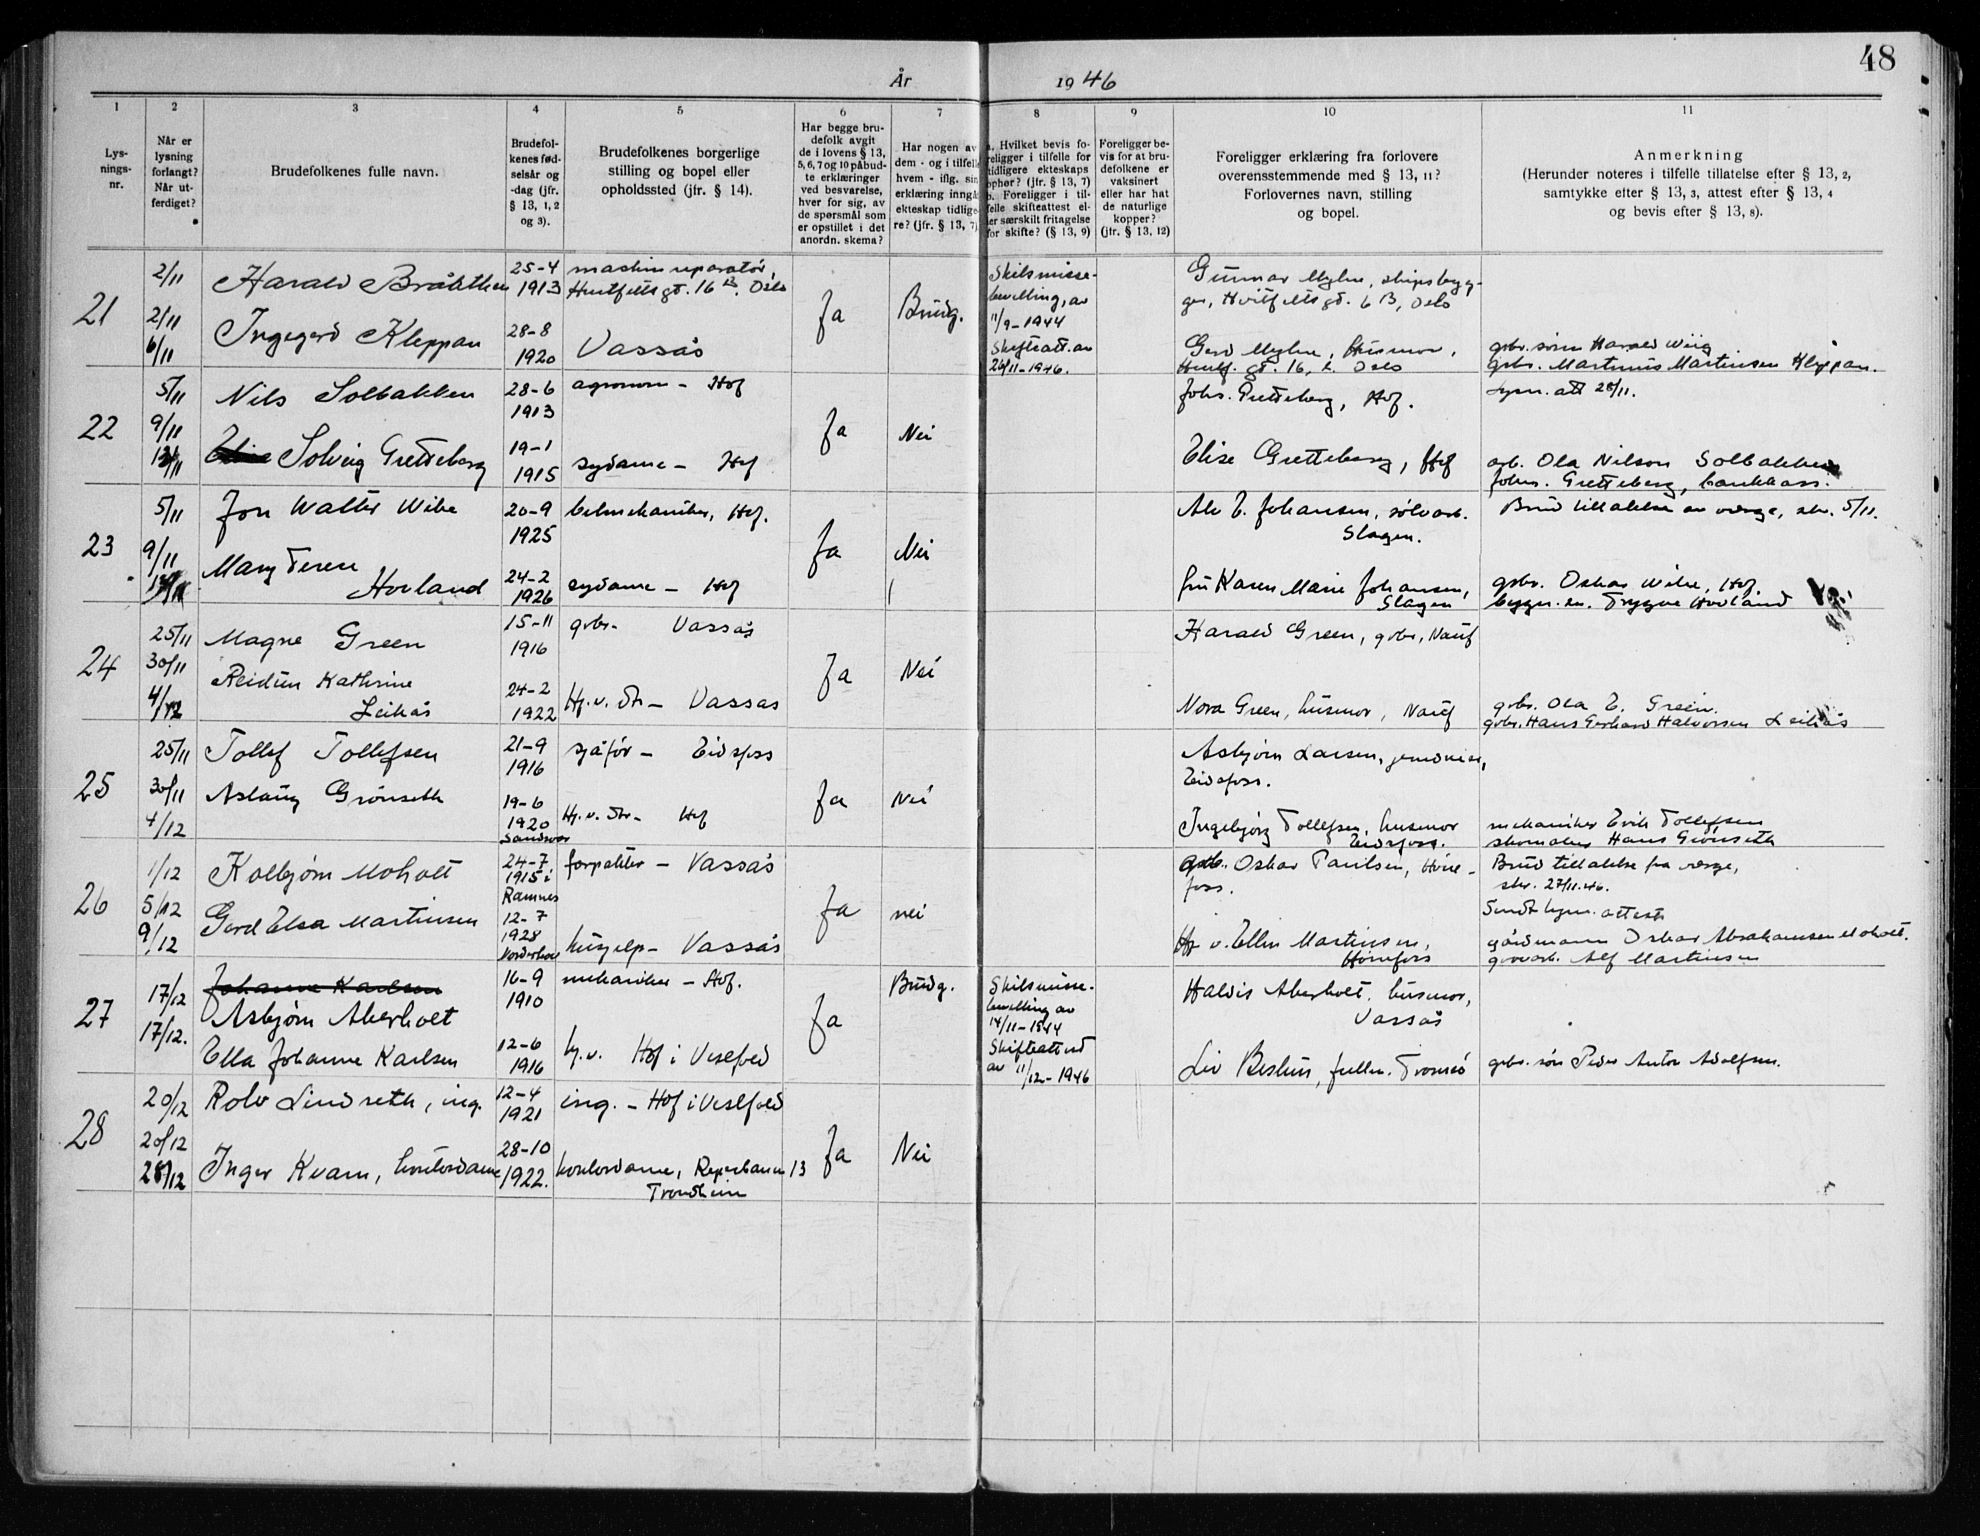 48
År 1946
1
2
3
4
5
6
7
8
9
10
11
Lys-
nings-
nr.
Når er
lysning
forlangt?
Når ut-
ferdiget?
Brudefolkenes fulle navn.
Brudefol-
kenes fød-
selsår og
-dag (jfr.
§ 13, 1, 2
og 3).
Brudefolkenes borgerlige
stilling og bopel eller
opholdssted (jfr. § 14).
Har begge bru-
defolk avgit
de i lovens § 13,
5, 6, 7 og 10 påbud-
te erklæringer
ved besvarelse,
hver for sig, av
de spørsmål som
er opstillet i det
anordn. skema?
Har nogen av
dem - og i tilfelle
hvem - iflg. sin
erklæring inngå
ekteskap tidlige-
re? (jfr. § 13, 7)
a. Hvilket bevis fo-
religger i tilfelle for
tidligere ekteskaps
ophør? (jfr. § 13, 7)
b. Foreligger i til-
felle skifteattest el-
ler særskilt fritagelse
for skifte? (§ 13, 9)
Foreligger be-
vis for at bru-
defolkene er
vaksinert
eller har hat
de naturlige
kopper?
(jfr. § 13, 12)
Foreligger erklæring fra forlovere
overensstemmende med § 13, 11?
Forlovernes navn, stilling
og bopel.
Anmerkning
(Herunder noteres i tilfelle tillatelse efter § 13, 2,
samtykke efter § 13, 3, attest efter § 13, 4
og bevis efter § 13, 8).
21
2/11
2/11
6/11
Harald Bråthen
Ingegerd Kleppan
25-4
1913
28-8
1920
maskinreparatør,
gt. 16 B. Oslo
Vassås
Ja
Brudg.
Skilsmisse-
bevilling, av
11/9-1944
Skifteatt. av
26/11-1946.
Gunnar Myhre, skipsbyg-
ger, Hvitfeltsgt. 6 B, Oslo
Gerd Myhre, husmor,
gt. 16, Oslo
gbr. sønn Harald Wiig
gbr. Martinius Martinsen Kleppan.
22
5/11
9/11
Nils Solbakken
Solveig Gretteberg
28-6
1913
19-1
1915
agronom - Hof
sydame - Hof
Ja
Nei
Johs. Gretteberg, Hof.
Elise Gretteberg, Hof
lysn. att 28/11.
arb. Ola Nilson Solbakken
Johs. Gretteberg, bankkass.
23
5/11
9/11
Jon Walter Wibe
Mary Teren
Hovland
20-9
1925
24-2
1926
bilmekaniker, Hof.
sydame - Hof
Ja
Nei
Alv E. Johansen, sølvarb.
Slagen.
fru Karen Marie Johansen,
Slagen
Brud tillatelse av verge, skr. 5/11.
gbr. Oskar Wibe, Hof
bygn. en. Trygve Hovland
24
25/11
30/11
4/12
Magne Green
Reidun Kathrine
Leikås
15-11
1916
24-2
1922
gbr. Vassås
Hj. v. str - Vassås
Ja
Nei
Harald Green, gbr.,
Nora Green, husmor,
gbr. Ola E. Green.
gbr. Hans Gerhard Halvorsen Leikås
25
25/11
30/11
4/12
Tollef Tollefsen
Aslaug Grønseth
21-9
1916
19-6
1920
Sandsvær
sjåfør - Eidsfoss
Hj. v. str - Hof
Ja
Nei
Asbjørn Larsen,
Eidsfoss.
Ingebjørg Tollefsen, husmor
Eidsfoss.
mekaniker Erik Tollefsen
skomaker Hans Grønseth
26
1/12
5/12
9/12
Kolbjørn Moholt
Gerd Elsa Martinsen
24-7
1915 i
Ramnes
12-7
1928
Norderhov
forpakter - Vassås
hushjelp - Vassås
Ja
nei
Oskar Paulsen, Høne-
foss.
Hj. v. Ellen Martinsen,
Hønefoss
Brud tillatelse fra verge,
skr. 27/11.46.
Sendt lysn. attest
gårdmann Oskar Abrahamsen Moholt.
Alf Martinsen
27
17/12
17/12.
Johanne Karlsen
Asbjørn Aherholt
Ella Johanne Karlsen
16-9
1910
12-6
1916
mekaniker - Hof.
hj. v. Hof i Vestfold
Ja
Brudg.
Skilsmisse-
bevilling av
14/11-1944
Skifteattest
av 11/12-1946
Haldis Aherholt, husmor,
Vassås
Liv Beslun, fullm. Tromsø
gbr. søn Peder Anton Adolfsen.
28
20/12
20/12
28/12
Rolv Lindseth, ing.
Inger Kvam, kontordame
12-4
1921
28-10
1922.
ing. - Hof i Vestfold
kontordame, Reperbanen 13
Trondheim
Ja
Nei